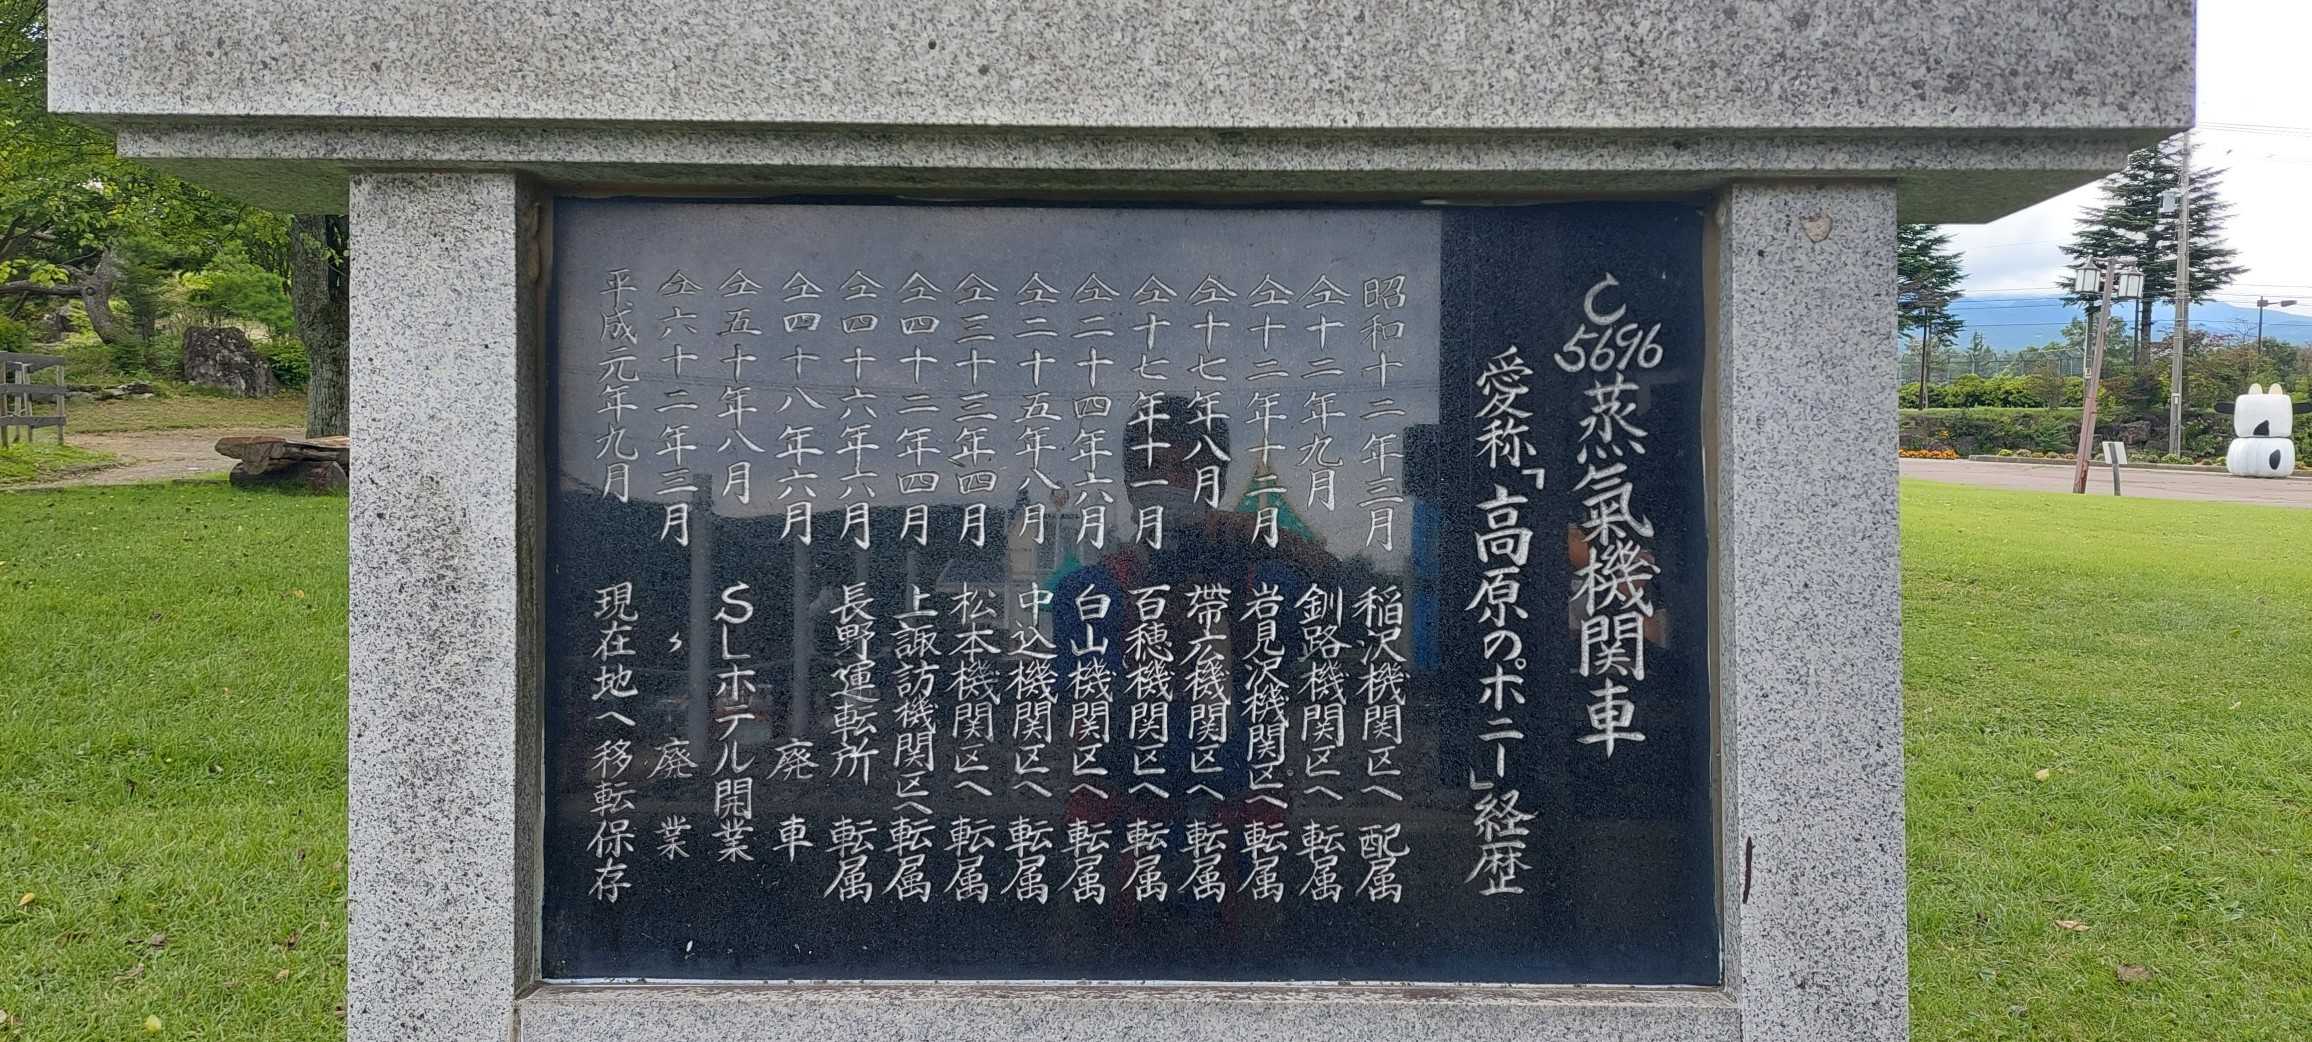 C5696蒸氣機関車
愛称「高原のポニー」経歴
昭和十二年三月 稲沢機関区へ 配属
仝十二年九月 釧路機関区へ 転属
仝十二年十二月 岩見沢機関区へ 転属
仝十七年八月 帯広機関区へ 転属
仝十七年十一月 百穂機関区へ 転属
仝二十四年六月 白山機関区へ 転属
仝二十五年八月 中込機関区へ 転属
仝三十三年四月 松本機関区へ 転属
仝四十二年四月 上諏訪機関区へ 転属
仝四十六年六月 長野運転所 転属
仝四十八年六月 廃車
仝五十年八月 SLホテル開業
仝六十二年三月 〃 廃業
平成元年九月 現在地へ移転保存